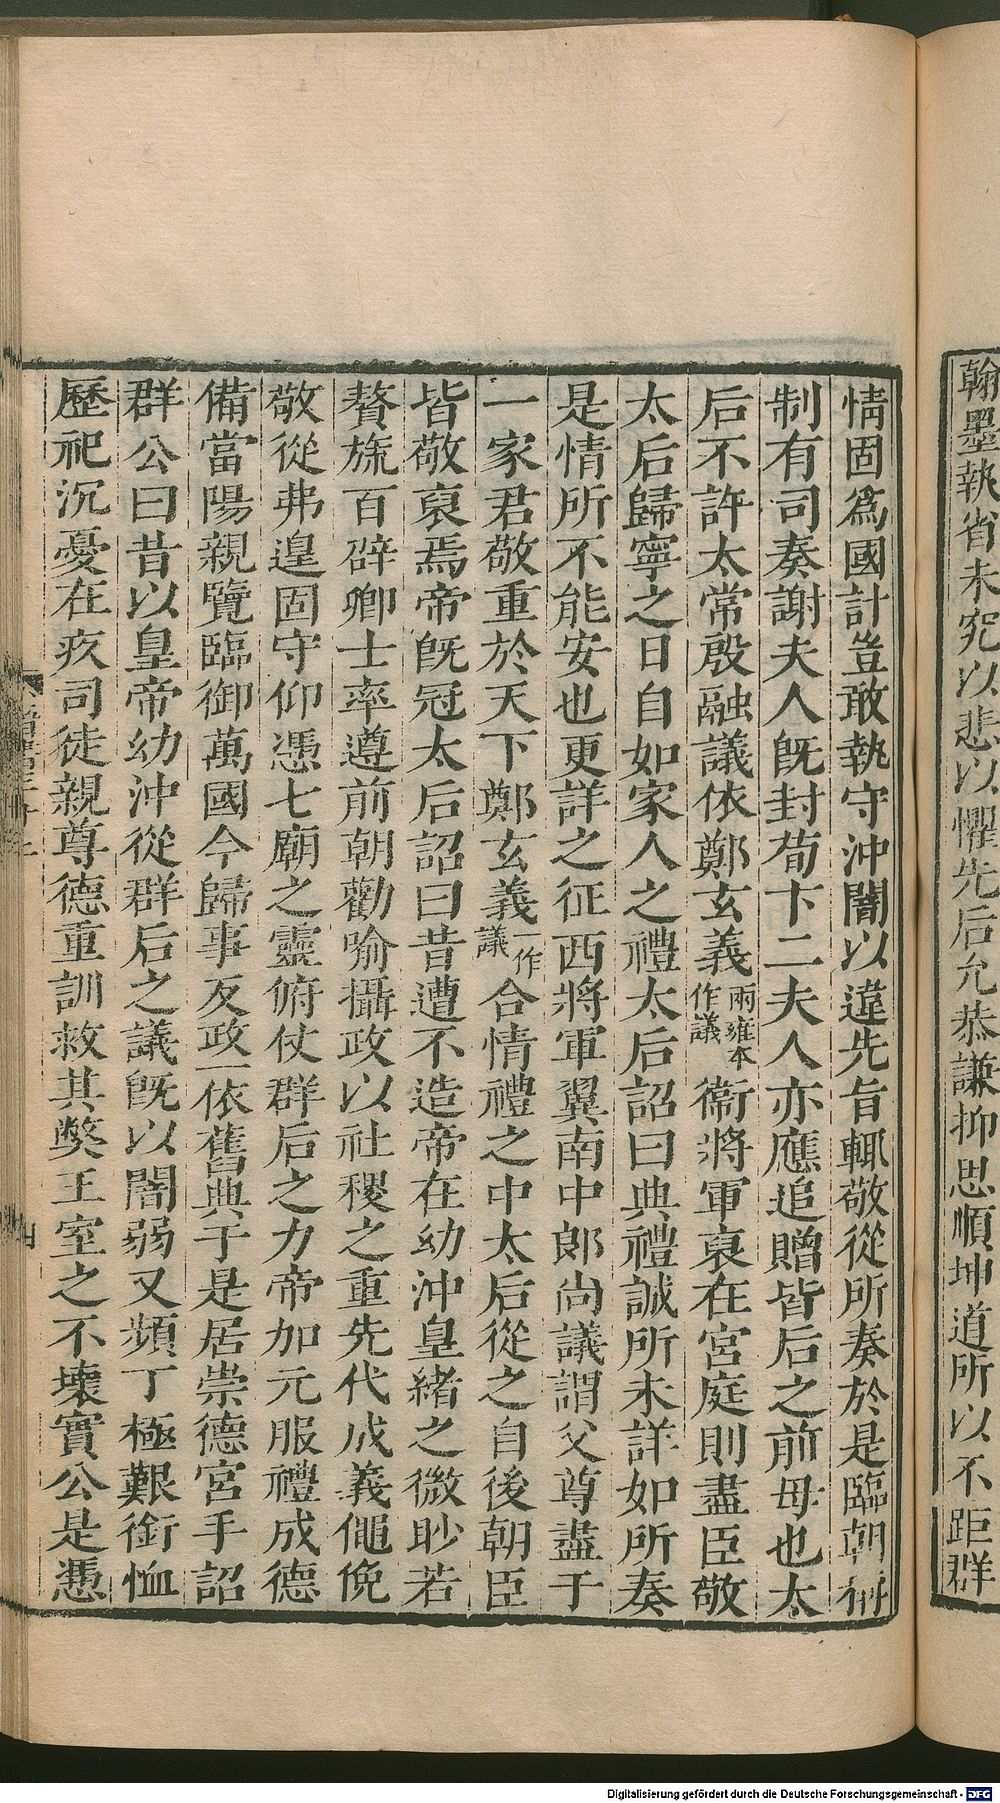 翰墨執省未究以悲以懼先后允恭謙抑思順坤道所以不距群
情固爲國計豈敢執守沖闇以違先旨輒敬從所奏於是臨朝稱
制有司奏謝夫人旣封荀卞二夫人亦應追贈皆后之前母也太
后不許太常殷融議依鄭玄義兩雍本作議衞將軍裒在宮庭則盡臣敬
太后歸寧之日自如家人之禮太后詔曰典禮誠所未詳如所奏
是情所不能安也更詳之征西將軍翼南中郎尙議謂父尊盡于
一家君敬重於天下鄭玄義一作議合情禮之中太后從之自後朝臣
皆敬裒焉帝旣冠太后詔曰昔遭不造帝在幼沖皇緒之微眇若
贅旒百辟卿士率遵前朝勸喻攝政以社稷之重先代成義僶俛
敬從弗遑固守仰憑七廟之靈俯仗群后之力帝加元服禮成德
備當陽親覽臨御萬國今歸事反政一依舊典于是居崇德宮手詔
群公曰昔以皇帝幼沖從群后之議旣以闇弱又頻丁極艱銜恤
歷祀沉憂在疚司徒親尊德重訓救其獘王室之不壞實公是憑
Digitalisierung gefördert durch die Deutsche Forschungsgemeinschaft - DFG